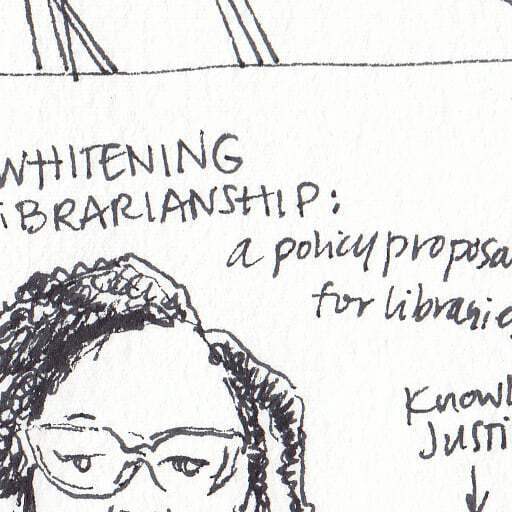 WHITENING
LIBRARIANSHIP:
a policy proposa
for librarie
Knowl
Justi